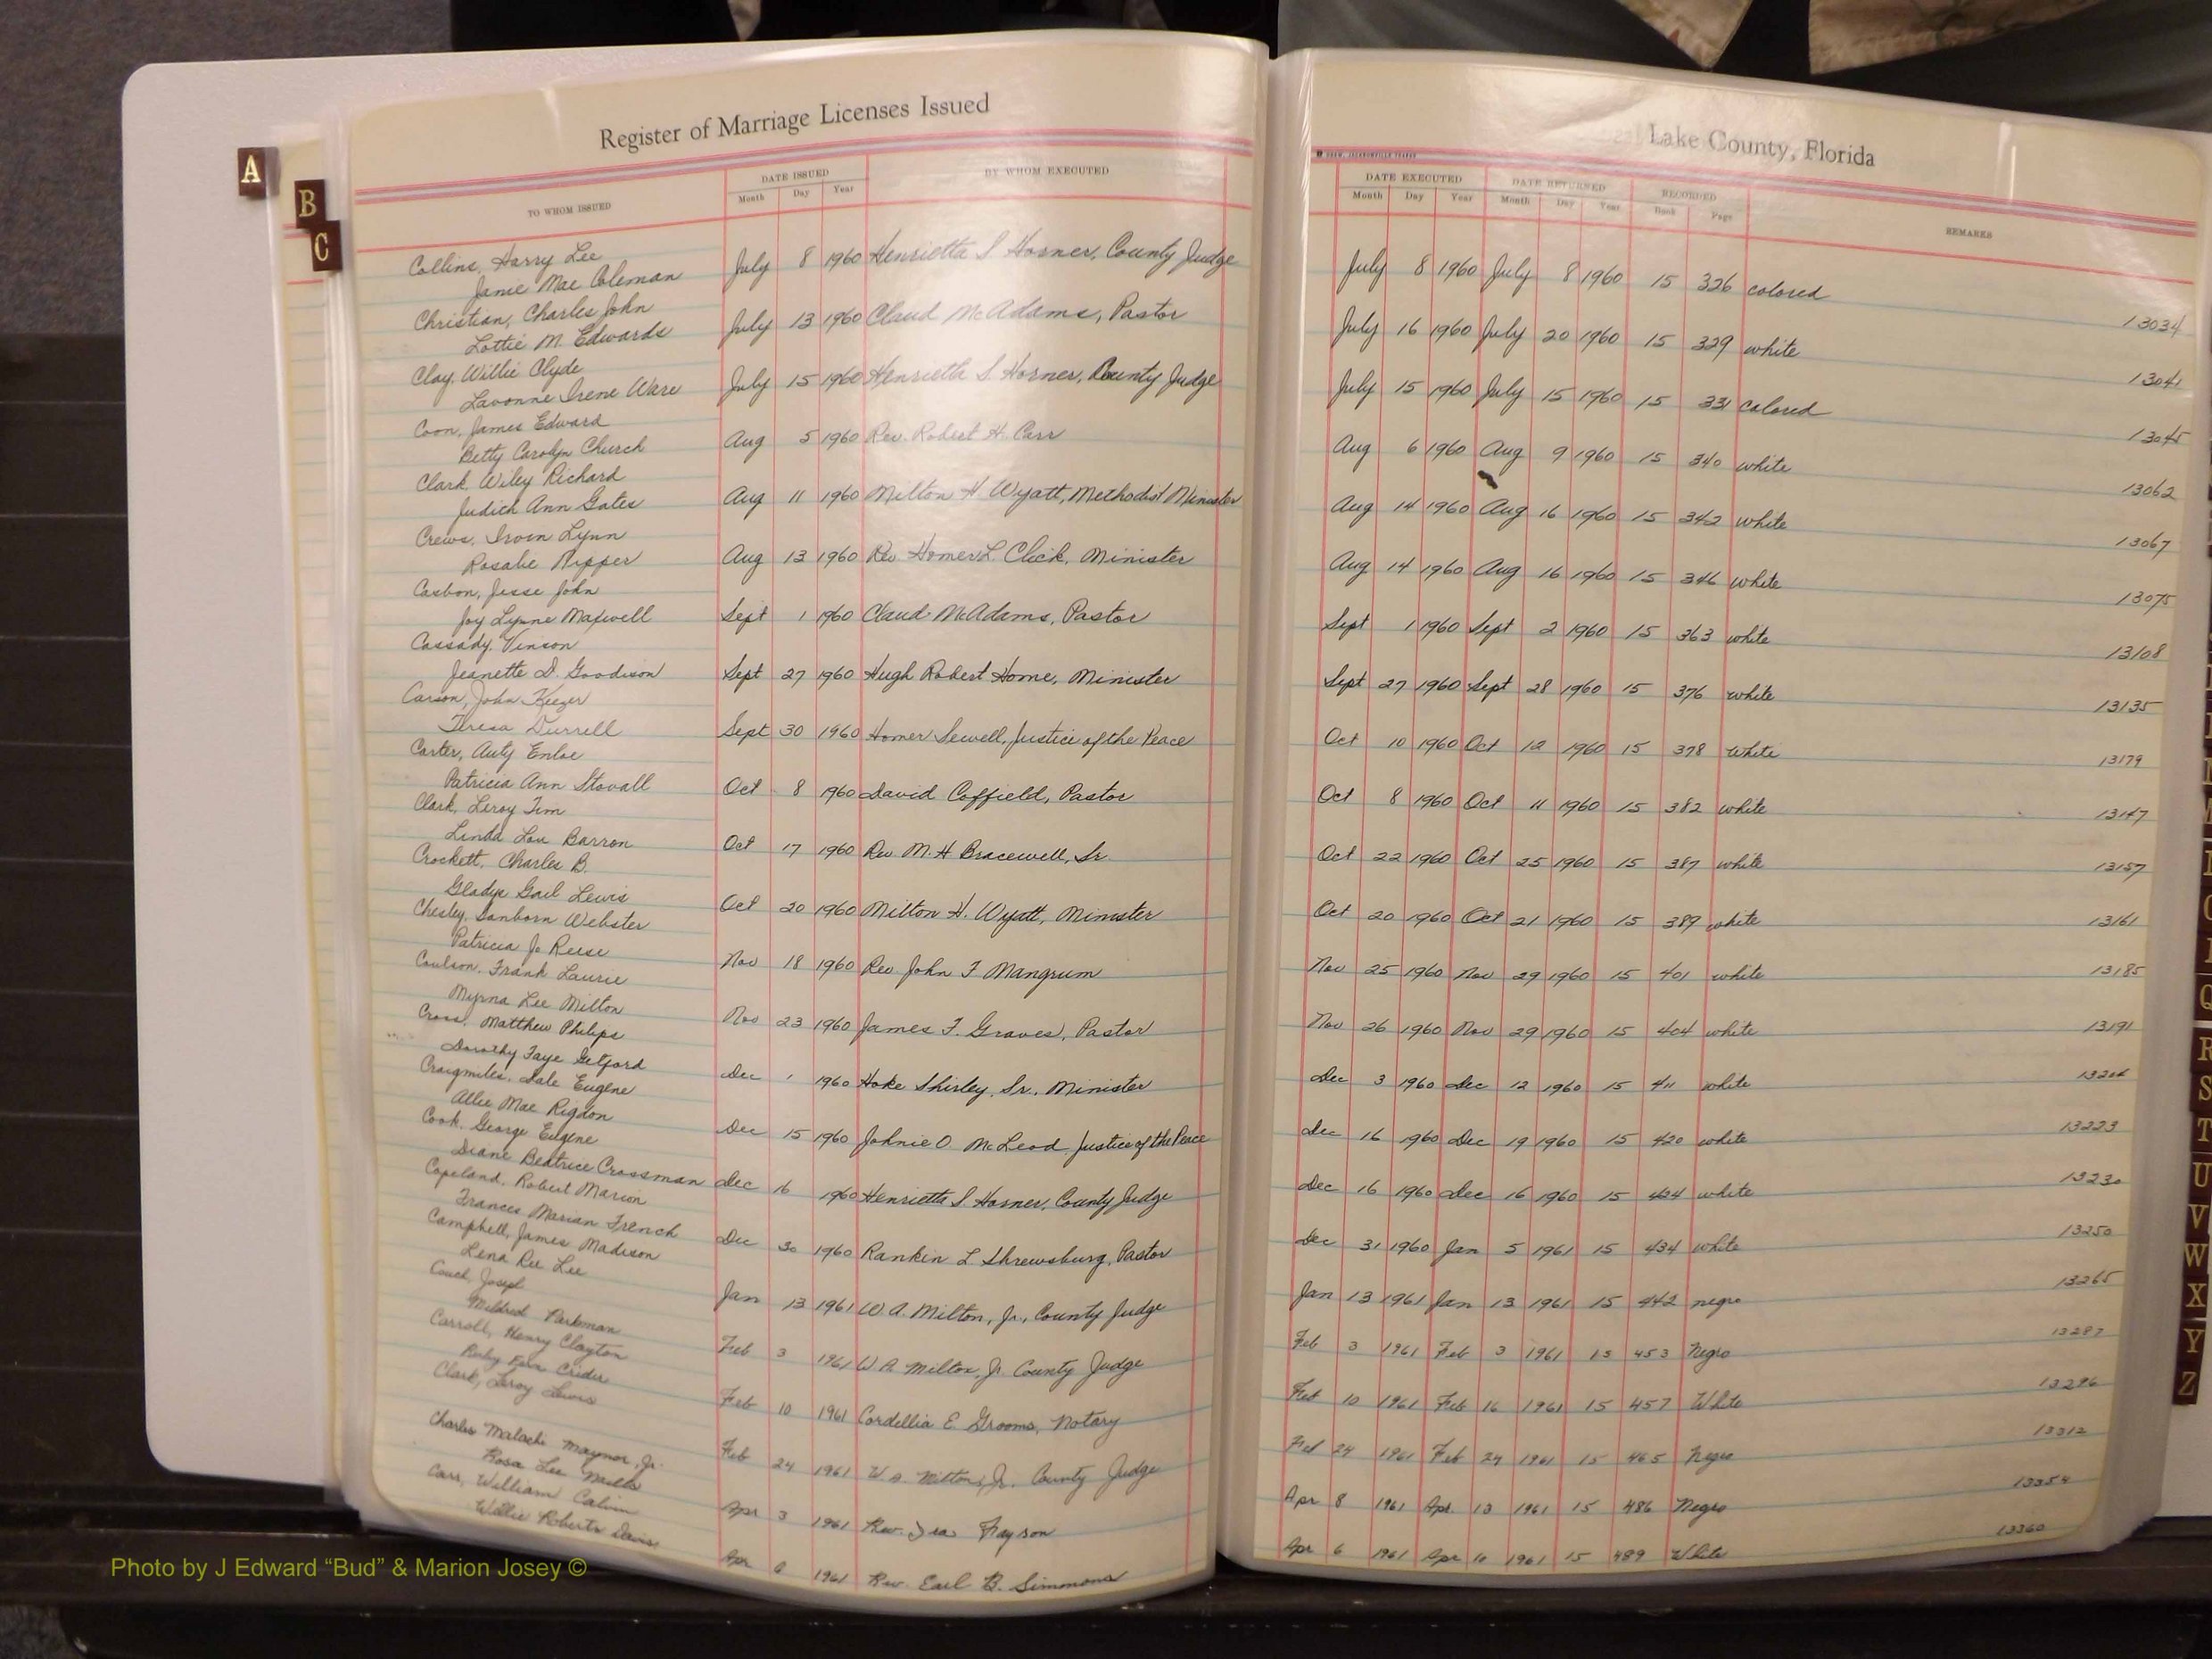 Register of Marriage Licenses Issued
TO WHOM ISSUED DATE ISSUED BY WHOM EXECUTED
Month Day Year
Collins, Harry Lee
Janie Mae Coleman July 8 1960 Henrietta S Horner, County Judge
Christian, Charles John
Lottie M. Edwards July 13 1960 Claud McAdams, Pastor
Clay, Willie Clyde
Lavonne Irene Ware July 15 1960 Henrietta S. Horner, County Judge
Coon, James Edward
Betty Carolyn Church Aug 5 1960 Rev. Robert H. Carr
Clark, Wiley Richard
Judith Ann Gates Aug 11 1960 Milton H Wyatt, Methodist Minister
Crews, Irvin Lynn
Rosalie Aug 13 1960 Rev Homer L Click, Minister
Casbon, Jesse John
Joy Lynne Maxwell Sept 1 1960 Claud McAdams, Pastor
Cassady, Vinson
Jeanette D. Goodison Sept 27 1960 Hugh Robert Horne, Minister
Carson, John
Teresa Durrell Sept 30 1960 Homer Sewell, Justice of the Peace
Carter, Auty Enloe
Patricia Ann Stovall Oct 8 1960 David Coffield, Pastor
Clark, Leroy Tim
Linda Lou Barron Oct 17 1960 Rev. M. H Bracewell, Sr.
Crockett, Charles B.
Gladys Gail Lewis Oct 20 1960 Milton H. Wyatt, Minister
Chesley, Sanborn Webster
Patricia Jo Reese Nov 18 1960 Rev John F Mangrum
Coulson, Frank Laurie
Myrna Lee Milton Nov 23 1960 James F. Graves, Pastor
Cross, Matthew Philips
Dorothy Faye Getford Dec 1 1960 Hoke Shirley, Sr., Minister
Craigmiles, Dale Eugene
Allie Mae Rigdon Dec 15 1960 Johnie O. McLeod, Justice of the Peace
Cook, George Eugene
Diane Beatrice Crossman Dec 16 1960 Henrietta S Horner, County Judge
Copeland, Robert Marion
Frances Marian French Dec 30 1960 Rankin L Shrewsburg, Pastor
Campbell, James Madison
Lena Lee Jan 13 1961 W A. Milton, Jr., County Judge
Couch, Joseph
Mildred Parkman Feb 3 1961 W A Milton, Jr. County Judge
Carroll, Henry Clayton
Ruby Crider Feb 10 1961 Cordellia E Grooms, Notary
Clark, Leroy Lewis
Feb 24 1961 W. A. Milton, Jr. County Judge
Charles Malachi Maynor, Jr.
Rosa Lee Mills Apr 3 1961 Rev.
Carr, William Calvin
Willie Roberta Davis Apr 6 1961 Rev. Earl B. Simmons
A
B
C
Lake County, Florida
DATE EXECUTED DATE RETURNED RECORDED REMARKS
Month Day Year Month Day Year Book Page
July 8 1960 July 8 1960 15 326 colored 13034
July 16 1960 July 20 1960 15 329 white 13041
July 15 1960 July 15 1960 15 331 colored 13045
Aug 6 1960 Aug 9 1960 15 340 white 13062
Aug 14 1960 Aug 16 1960 15 342 white 13067
Aug 14 1960 Aug 16 1960 15 346 white 13075
Sept 1 1960 Sept 2 1960 15 363 white 13108
Sept 27 1960 Sept 28 1960 15 376 white 13135
Oct 10 1960 Oct 12 1960 15 378 white 13179
Oct 8 1960 Oct 11 1960 15 382 white 13147
Oct 22 1960 Oct 25 1960 15 387 white 13157
Oct 20 1960 Oct 21 1960 15 389 white 13161
Nov 25 1960 Nov 29 1960 15 401 white 13185
Nov 26 1960 Nov 29 1960 15 404 white 13191
Dec 3 1960 Dec 12 1960 15 411 white
Dec 16 1960 Dec 19 1960 15 420 white 13223
Dec 16 1960 Dec 16 1960 15 424 white 13230
Dec 31 1960 Jan 5 1961 15 434 white 13250
Jan 13 1961 Jan 13 1961 15 442 negro 13265
Feb 3 1961 Feb 3 1961 15 453 Negro 13287
Feb 10 1961 Feb 16 1961 15 457 White 13296
Feb 24 1961 Feb 24 1961 15 465 Negro 13312
Apr 8 1961 Apr. 13 1961 15 486 Negro 13354
Apr 6 1961 Apr 10 1961 15 489 White 13360
Q
R
S
T
U
V
W
X
Y
Z
Photo by J Edward “Bud” & Marion Josey ©